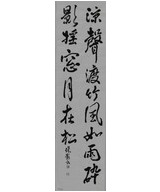 凉聲渡竹風如雨碎
影摇窗月在松